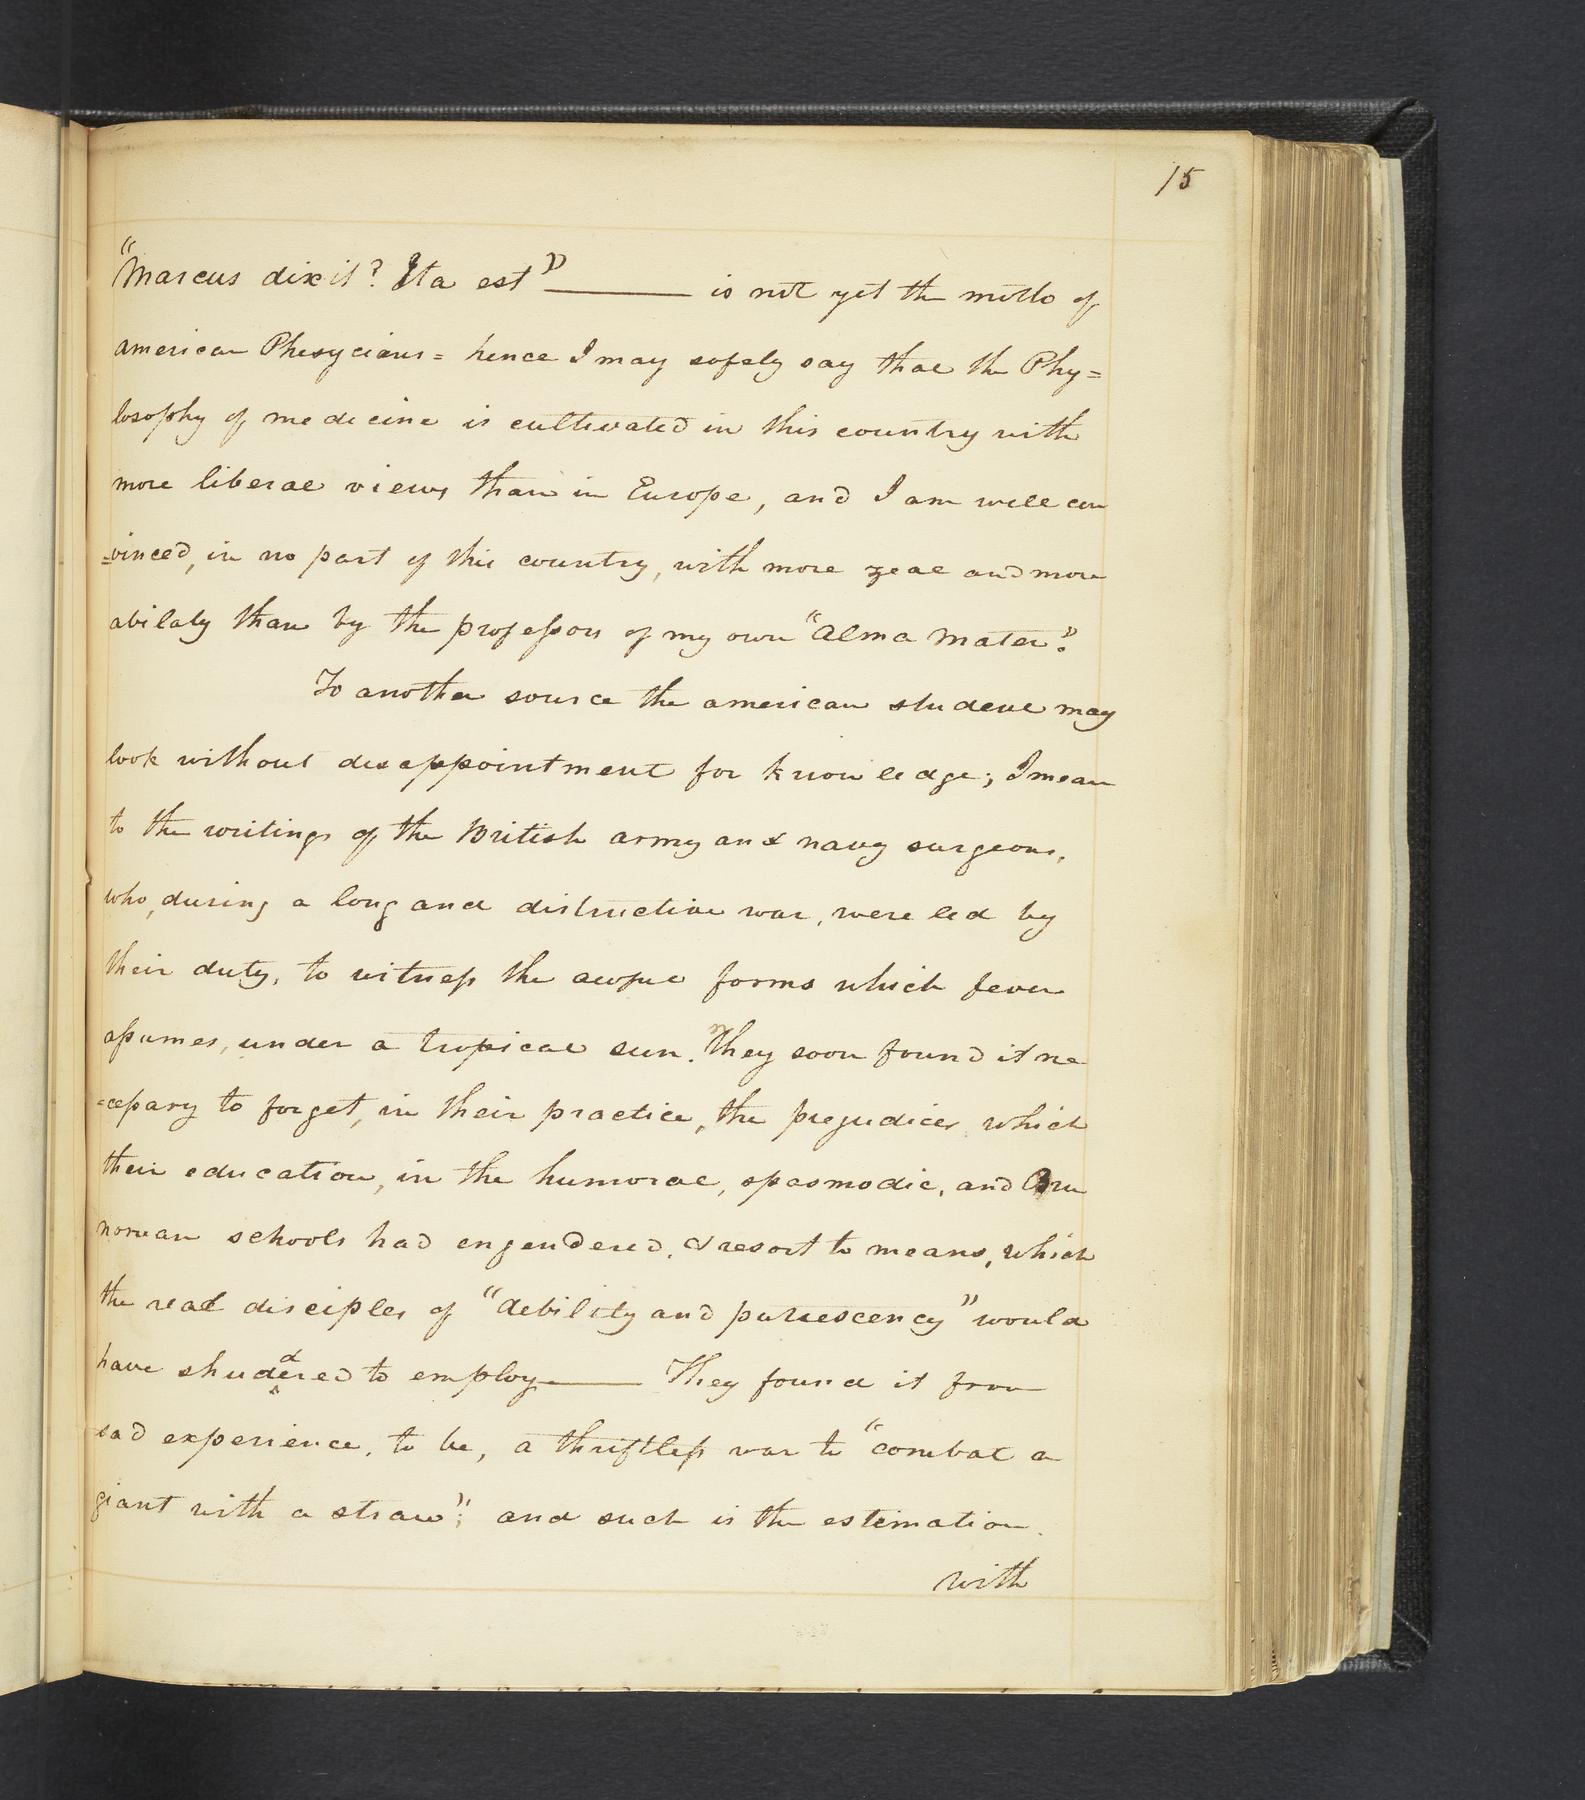 15
"Marcus dixit? Ita est" ——— is not yet the motto of
american Phesycians = hence I may safely say that the Phy=
losophy of medicine is cultivated in this country with
more liberal views than in Europe, and I am well con
=vinced, in no part of this country, with more zeal and more
abilaty than by the professors of my own "Alma Mater".
To another source the american student may
look without disappointment for knowledge; I mean
to the writings of the British army and navy surgeons,
who, during a long and distructive war, were led by
their duty, to witness the awful forms which fever
assumes, under a tropical sun. They soon found it ne
=cessary to forget, in their practice, the prejudices which
their education, in the humoral, spasmodic, and Bru
nonian schools had engendered, & resort to means, which
the real disciples of "debility and putrescency" would
have shuddered to employ ——— They found it from
sad experience, to be, a thriftless war to "combat a
giant with a straw"; and such is the estimation
with